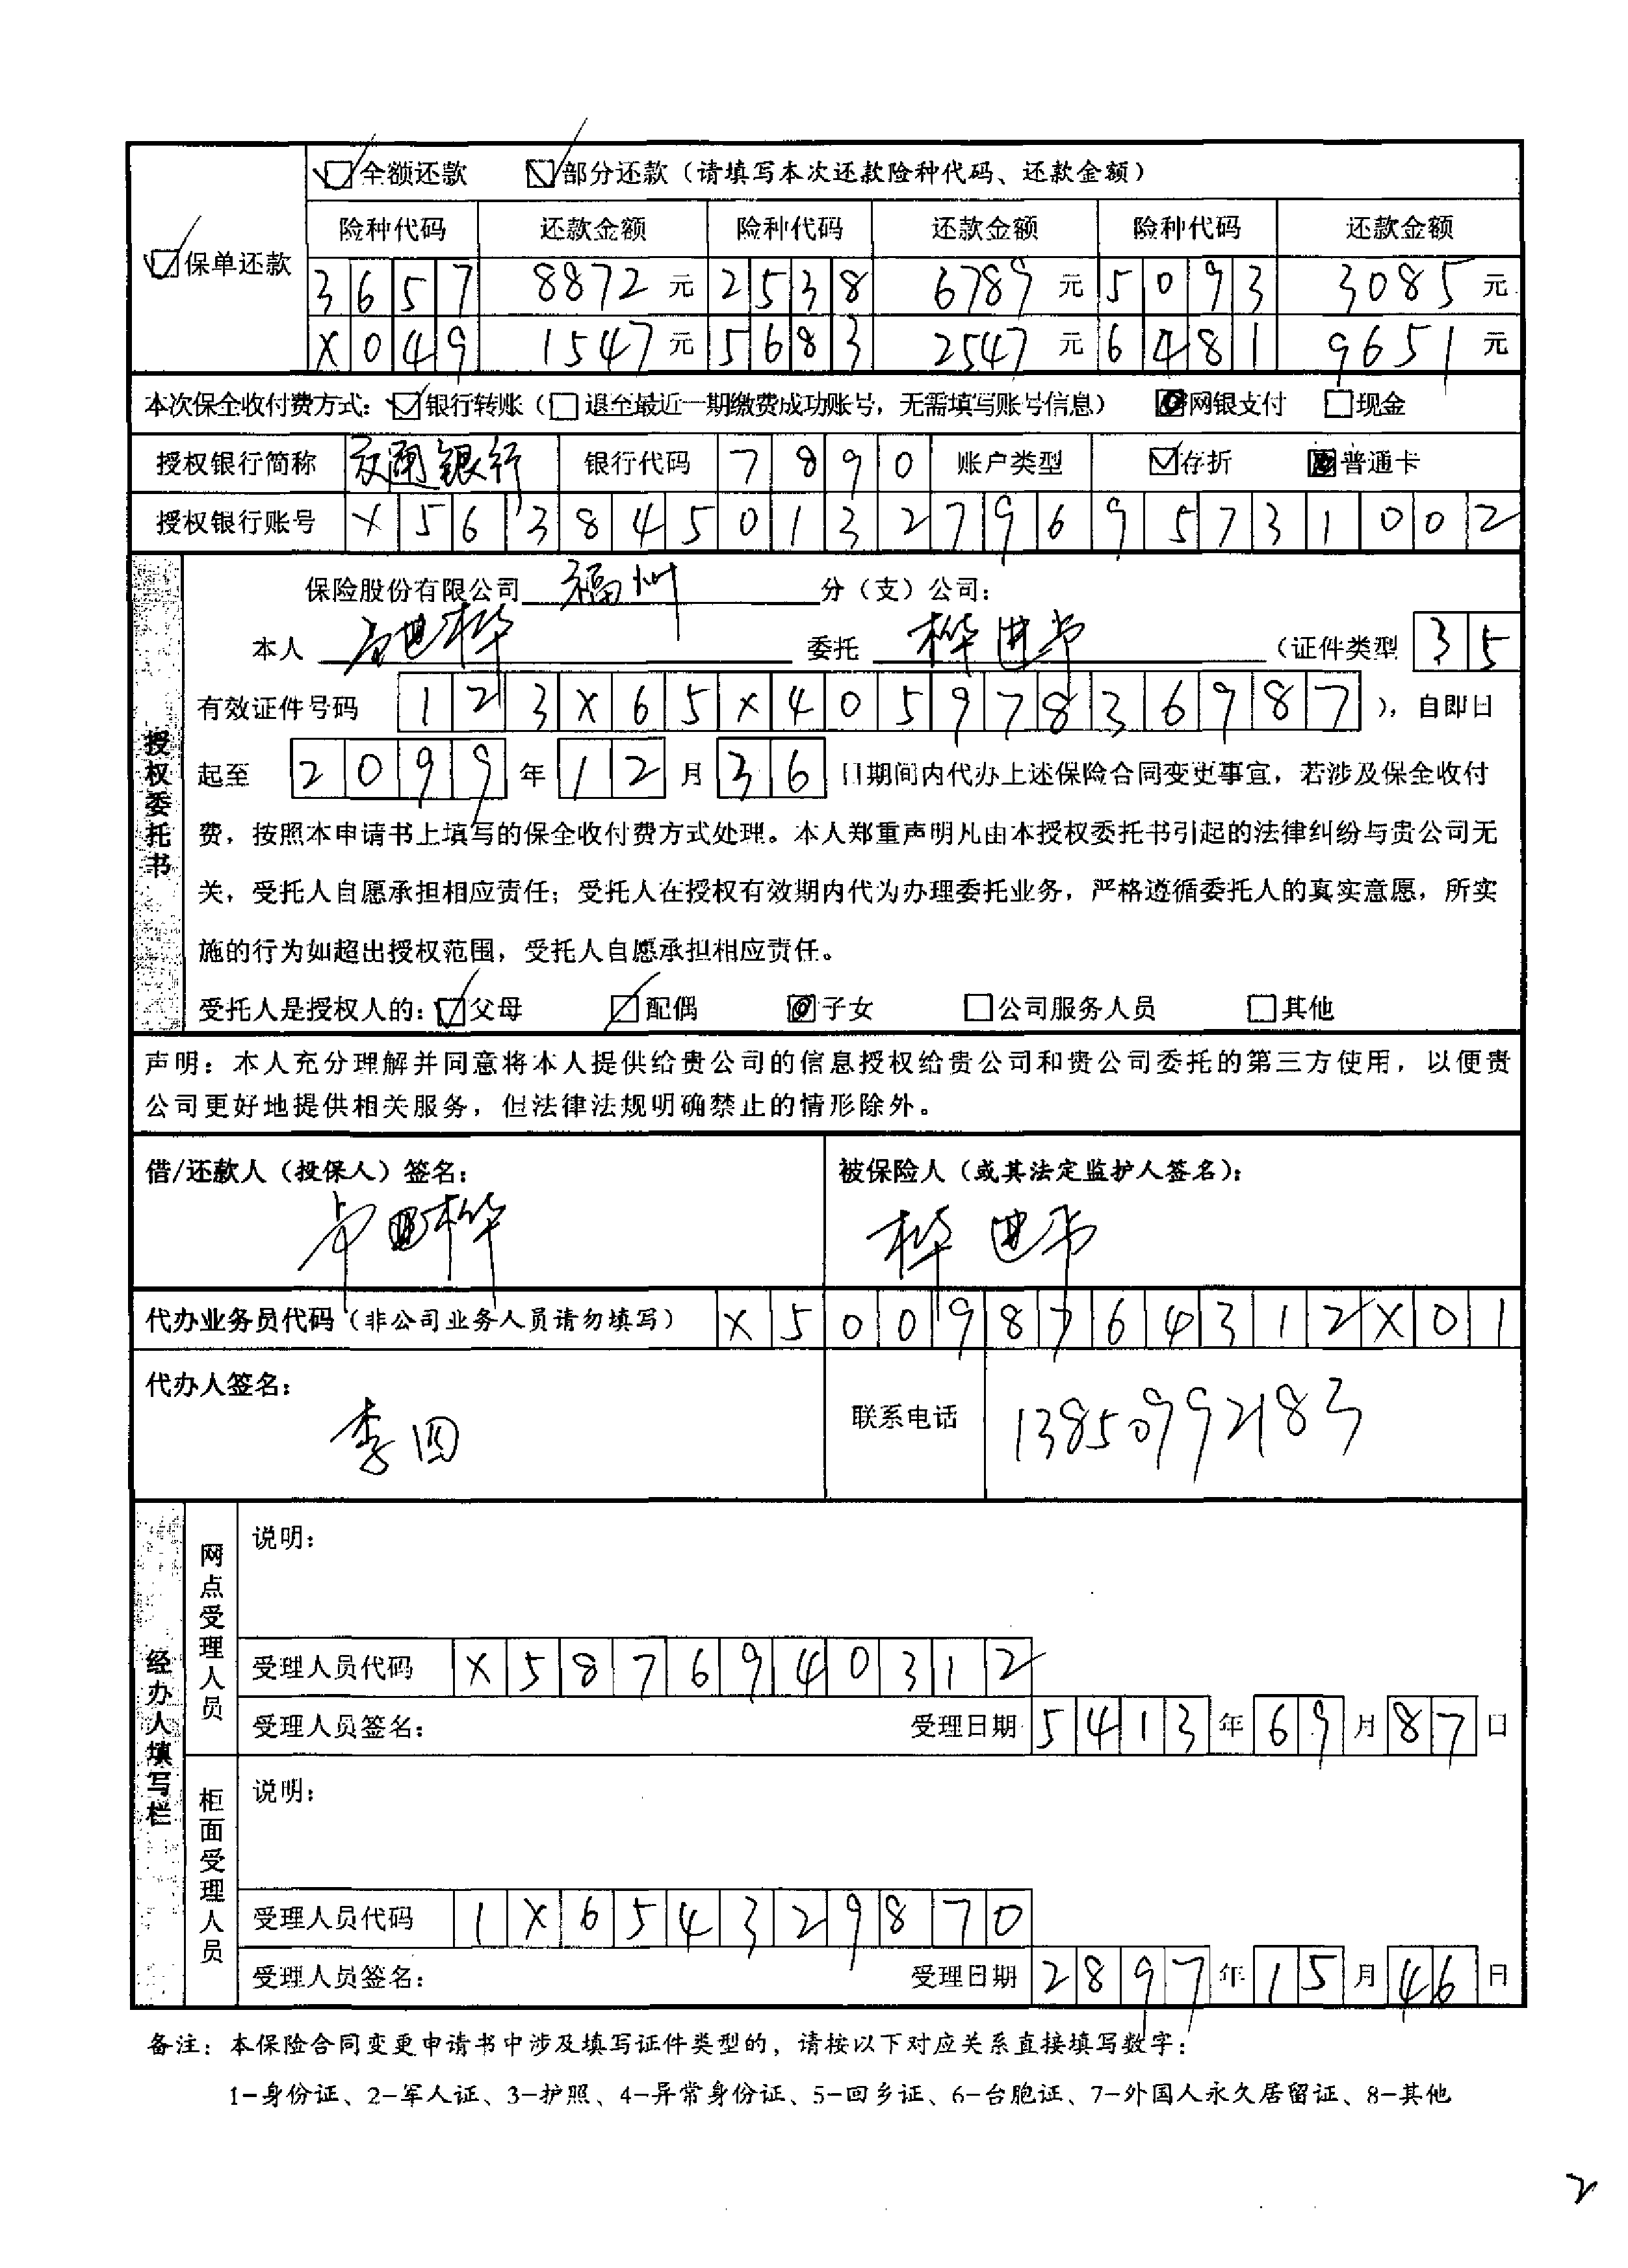 全额还款 部分还款（请填写本次还款险种代码、还款金额）
保单还款
险种代码 还款金额 险种代码 还款金额 险种代码 还款金额
3657 8872元 2538 6789元 5093 3085元
X049 1547元 5683 2547元 6481 9651元
本次保全收付费方式：银行转账（退至最近一期缴费成功账号，无需填写账号信息） 网银支付 现金
授权银行简称 交通银行 银行代码 7890 账户类型 存折 普通卡
授权银行账号 X563845013279695731002
授权委托书
保险股份有限公司 福州 分（支）公司：
本人 委托 （证件类型 35
有效证件号码 123X65X40597836987 ），自即日
起至 2099 年 12 月 36 日期间内代办上述保险合同变更事宜，若涉及保全收付
费，按照本申请书上填写的保全收付费方式处理。本人郑重声明凡由本授权委托书引起的法律纠纷与贵公司无
关，受托人自愿承担相应责任；受托人在授权有效期内代为办理委托业务，严格遵循委托人的真实意愿，所实
施的行为如超出授权范围，受托人自愿承担相应责任。
受托人是授权人的：父母 配偶 子女 公司服务人员 其他
声明：本人充分理解并同意将本人提供给贵公司的信息授权给贵公司和贵公司委托的第三方使用，以便贵
公司更好地提供相关服务，但法律法规明确禁止的情形除外。
借/还款人（投保人）签名： 被保险人（或其法定监护人签名）：
代办业务员代码（非公司业务人员请勿填写） X50098764312X01
代办人签名： 李四 联系电话 13850992183
经办人填写栏
网点受理人员
说明：
受理人员代码 X5876940312
受理人员签名： 受理日期 5413 年 69 月 87 日
柜面受理人员
说明：
受理人员代码 1X654329870
受理人员签名： 受理日期 2897 年 15 月 46 日
备注：本保险合同变更申请书中涉及填写证件类型的，请按以下对应关系直接填写数字：
1-身份证、2-军人证、3-护照、4-异常身份证、5-回乡证、6-台胞证、7-外国人永久居留证、8-其他
2